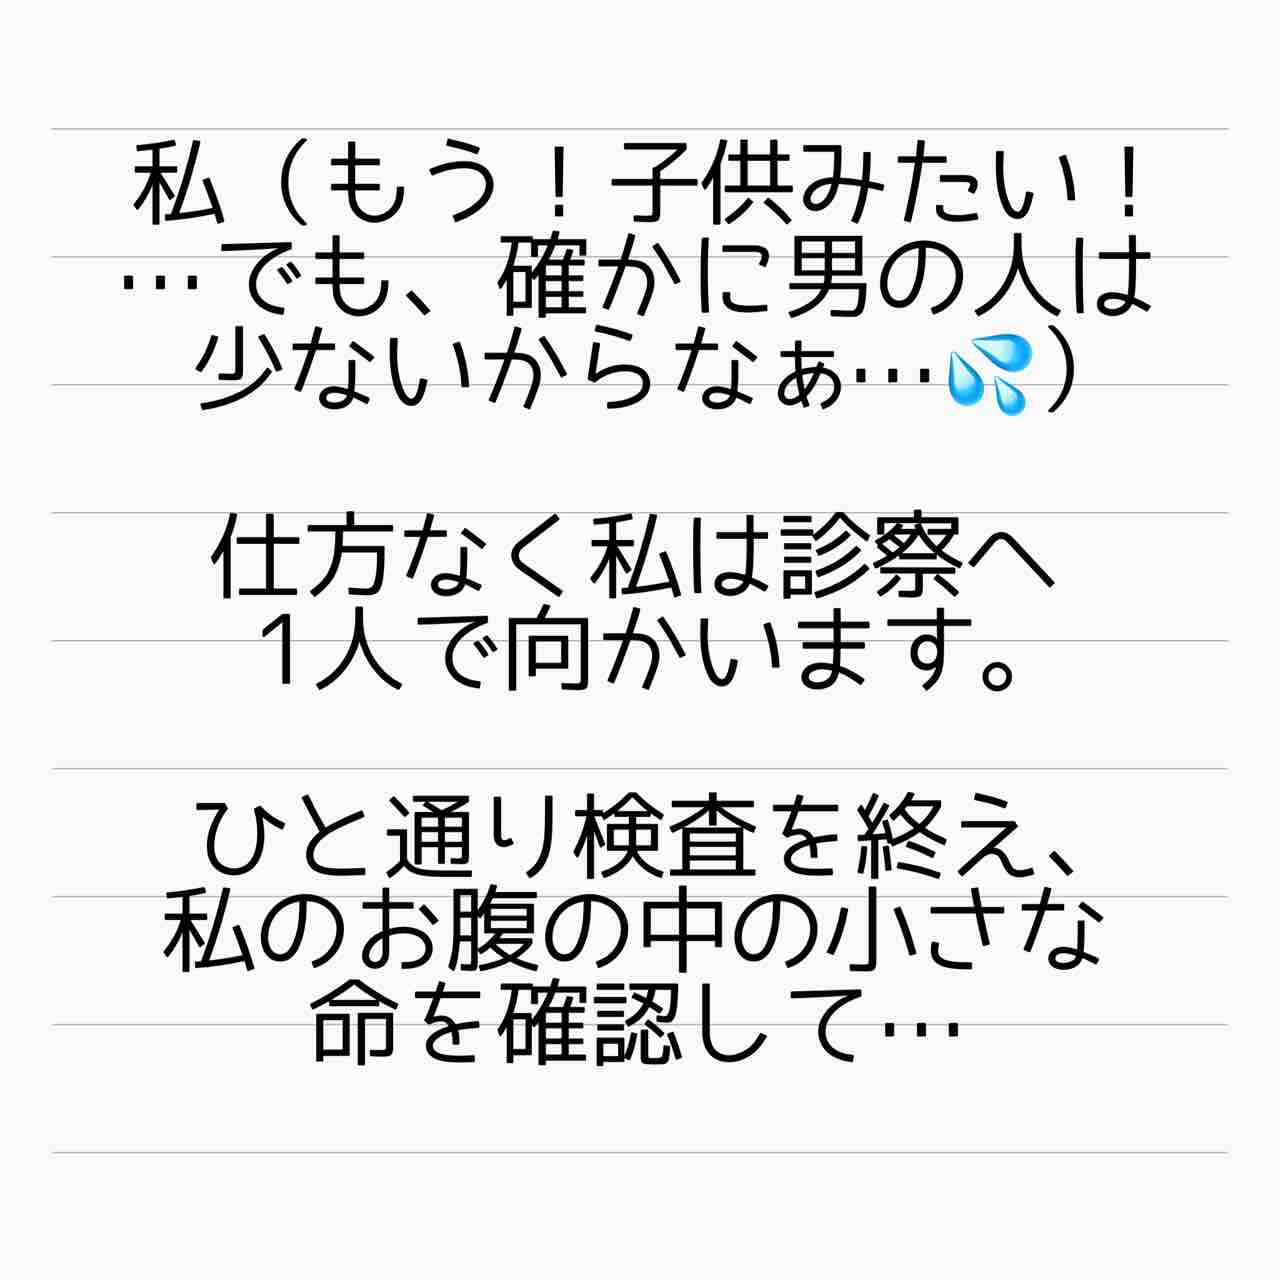 私（もう！子供みたい！
…でも、確かに男の人は
少ないからなぁ…💦）
仕方なく私は診察へ
1人で向かいます。
ひと通り検査を終え、
私のお腹の中の小さな
命を確認して…